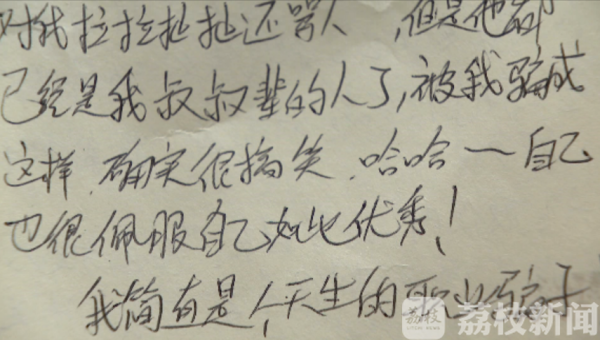 对我拉拉扯扯还骂人，但是他都
已经是我叔叔辈的人了，被我骗成
这样，确实很搞笑，哈哈一自己
也很佩服自己如此优秀！
我简直是个天生的职业骗子
荔枝
荔枝新闻